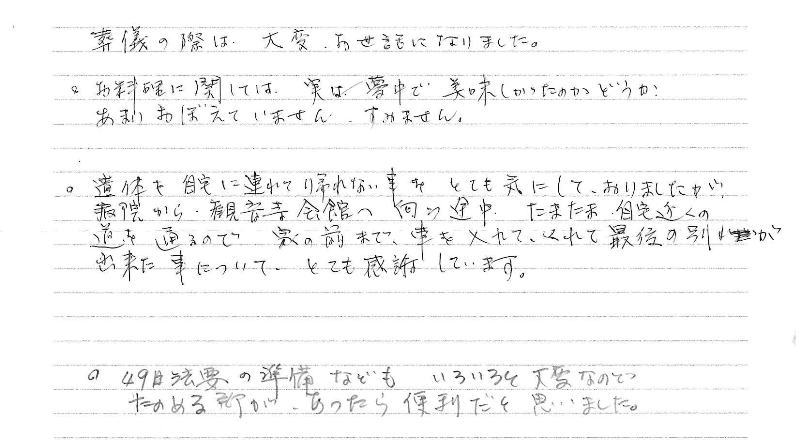 葬儀の際は、大変、お世話になりました。
。お料理に関しては、実は夢中で美味しかったのかどうか?
あまりおぼえていません。すみません。
。遺体を自宅に連れて帰れない事をとても気にして、おりましたが、
病院から、観音寺会館へ向う途中、たまたま、自宅近くの
道を通るので、家の前まで、車を入れて、くれて最後の別れが
出来た事について、とても感謝しています。
。49日法要の準備なども いろいろと大変なので、
たのめる所が、あったら便利だと思いました。